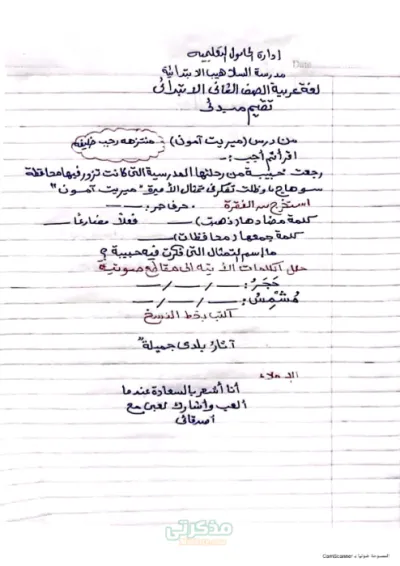 إدارة الحامول التعليمية
مدرسة السلاهيب الابتدائية
لغة عربية الصف الثاني الابتدائى
تقيم مبدئى
من درس (ميريت آمون)
اقرأ ثم أجب :-
رجعت حبيبة من رحلتها المدرسية التى كانت تزور فيها محافظة
سوهاج، وظلت تفكر فى تمثال الأميرة "ميريت آمون"
استخرج من الفقرة . حرف جر :-
كلمة مضادها (ذهبت) ____ فعلاً مضارعًا ____
كلمة جمعها (محافظات) ____
ما اسم التمثال التى فكرت فيه حبيبة ؟
حلل الكلمات الآتية الى مقاطع صوتية
حَجَرُ : __/__/__
مُشْمِسُ : __/__/__
اكتب بخط النسخ
آثار بلادى جميلة"
الإملاء
أنا أشعر بالسعادة عندما
ألعب وأشارك لعبى مع
أصدقائى
مذكرتى
الممسوحة ضوئيا بـ CamScanner